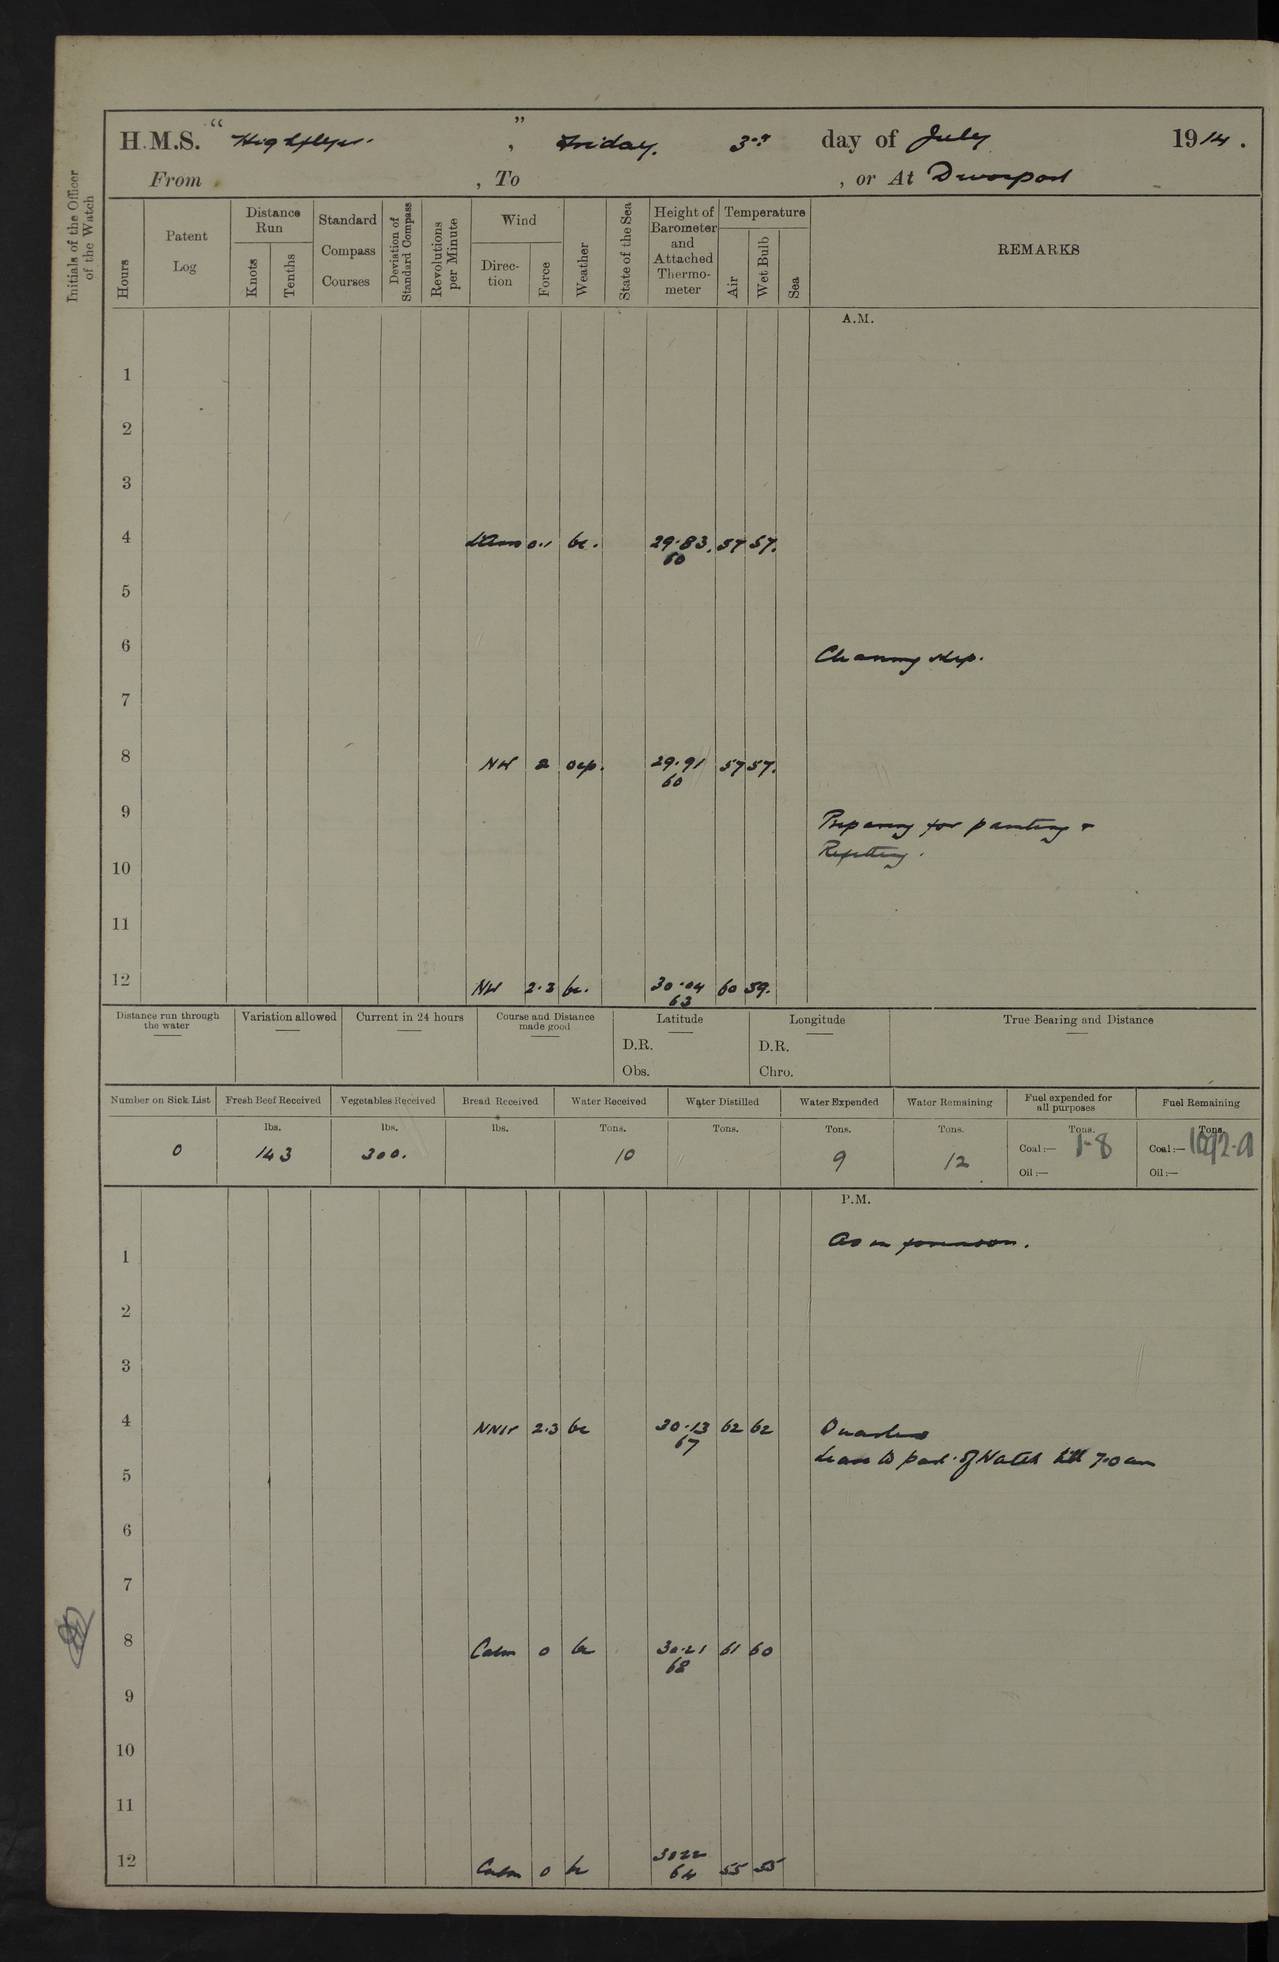 H.M.S. " Highflyer. " , Friday. 3rd day of July 1914.
From , To , or At Devonport
Initials of the Officer of the Watch
Hours
Patent Log
Distance Run
Knots
Tenths
Standard Compass Courses
Deviation of Standard Compass
Revolutions per Minute
Wind
Direction
Force
Weather
State of the Sea
Height of Barometer and Attached Thermometer
Temperature
Air
Wet Bulb
Sea
REMARKS
A.M.
1
2
3
4 0.1 bc. 29.83. 57 57.
60
5
6
Cleaning ship.
7
8 NW 2 ocp. 29.91 57 57.
60
9
Preparing for painting &
Refitting.
10
11
12 NW 2.3 bc. 30.04 60 59.
63
Distance run through the water
Variation allowed
Current in 24 hours
Course and Distance made good
Latitude
D.R.
Obs.
Longitude
D.R.
Chro.
True Bearing and Distance
Number on Sick List
Fresh Beef Received
Vegetables Received
Bread Received
Water Received
Water Distilled
Water Expended
Water Remaining
Fuel expended for all purposes
Fuel Remaining
lbs. lbs. lbs. Tons. Tons. Tons. Tons. Tons. Tons.
0 143 300. 10 9 12 Coal:— 1-8 Coal:—
Oil:— Oil:—
P.M.
As in forenoon.
1
2
3
4 NNW 2.3 bc 30.13 62 62 Quarters
67
Leave to part of Watch till 7.0 am
5
6
7
8 Calm 0 bc 30.21 61 60
68
9
10
11
12 Calm 0 bc 3022 55 55
64